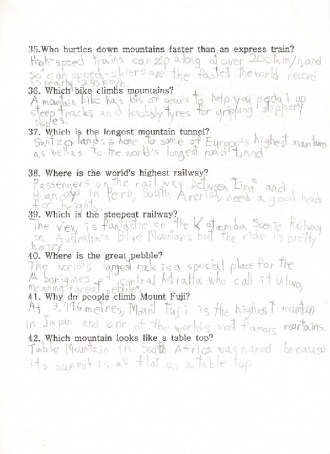 35.Who hurtles down mountains faster than an express train?
High-speed trains can zip along at over 200km/h and
so can speed-skiers are the fastest the world record
is nearly
36. Which bike climbs mountains?
A mountain bike has lots of gears to help you pedal up
steep tracks and knobbly tyres for gripping slippery
slopes.
37. Which is the longest mountain tunnel?
Switzerland is home to some of Europe's highest mountains
as well as to the world's longest road tunnel
38. Where is the world's highest railway?
Passengers on the rail way between Lima and
in Peru, South America, need a good head
for height.
39. Which is the steepest railway?
The view is fantastic on the Katoomba Scenic Railway
in Australia's Blue Mountains but the ride is pretty
hairy
40. Where is the great pebble?
The world's largest rock is a special place for the
Aborigines of Central who call it Uluru,
meaning great pebble
41. Why do people climb Mount Fuji?
At 3,776 metres, Mount Fuji is the highest mountain
in Japan and one of the world's most famous mountains.
42. Which mountain looks like a table top?
Table Mountain in South Africa was named because
its summit is as flat as a table top